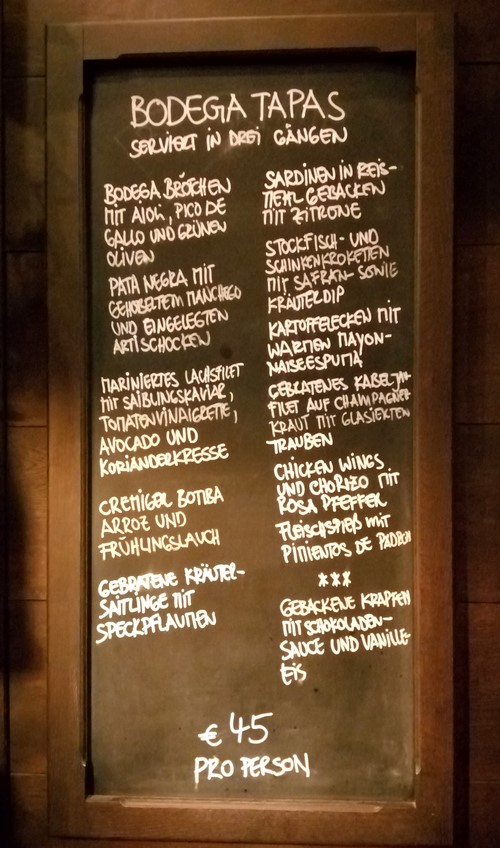 BODEGA TAPAS
SERVIERT IN DREI GÄNGEN
BODEGA BRÖTCHEN
MIT AIOLI, PICO DE
GALLO UND GRÜNEN
OLIVEN
PATA NEGRA MIT
GEHOBELTEM MANCHEGO
UND EINGELEGTEN
ARTISCHOCKEN
MARINIERTES LACHSFILET
MIT SAIBLINGSKAVIAR,
TOMATENVINAIGRETTE,
AVOCADO UND
KORIANDERKRESSE
CREMIGER BOMBA
ARROZ UND
FRÜHLINGSLAUCH
GEBRATENE KRÄUTER-
SAITLINGE MIT
SPECKPFLAUMEN
SARDINEN IN REIS-
MEHL GEBACKEN
MIT ZITRONE
STOCKFISCH- UND
SCHINKENKROKETTEN
MIT SAFRAN- SOWIE
KRÄUTERDIP
KARTOFFELECKEN MIT
WARMEN MAYON-
NAISEESPUMA
GEBRATENES KABELJAU-
FILET AUF CHAMPAGNER-
KRAUT MIT GLASIERTEN
TRAUBEN
CHICKEN WINGS
UND CHORIZO MIT
ROSA PFEFFER
FLEISCHSPIEß MIT
PIMIENTOS DE PADRON
***
GEBACKENE KRAPFEN
MIT SCHOKOLADEN-
SAUCE UND VANILLE-
EIS
€ 45
PRO PERSON